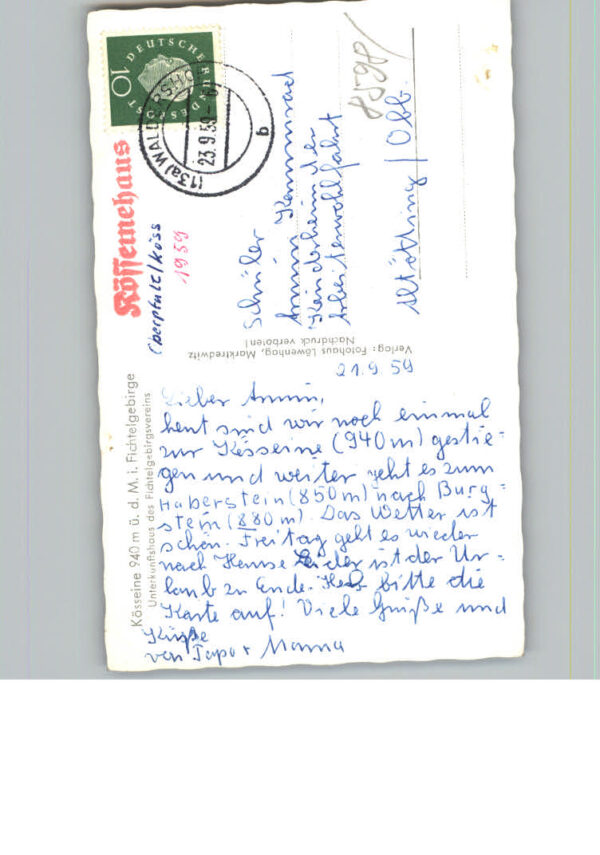 Kösseine 940 m ü. d. M. i. Fichtelgebirge
Unterkunftshaus des Fichtelgebirgsvereins
Kösseinehaus
Oberpfalz/Köss
1959
DEUTSCHE BUNDESPOST
10
(13a) WALDERSHOF
23.9.59
b
Verlag: Fotohaus Löwenhag, Marktredwitz
Nachdruck verboten!
21.9 59
Lieber Armin,
heut sind wir noch einmal
zur Kösseine (940m) gestie-
gen und weiter geht es zum
Haberstein (850m) nach Burg-
stein (880m). Das Wetter ist
schön. Freitag geht es wieder
nach Hause. Leider ist der Ur-
laub zu Ende. Heb bitte die
Karte auf! Viele Grüße und
Küsse
von Papa + Mama
Schüler
Armin
Kinderheim der
Arbeiterwohlfahrt
Altötting / Obb.